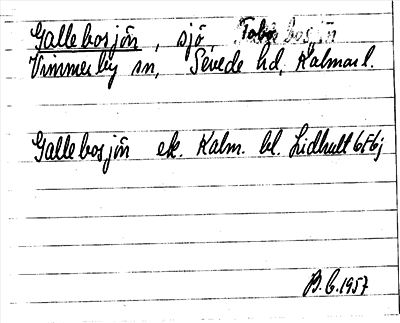 Gallebosjön, sjö,
Vimmerby sn, Sevede hd, Kalmar l.
Gallebosjön ek. Kalm. bl. Lidhult 6F6j
B.G. 1957